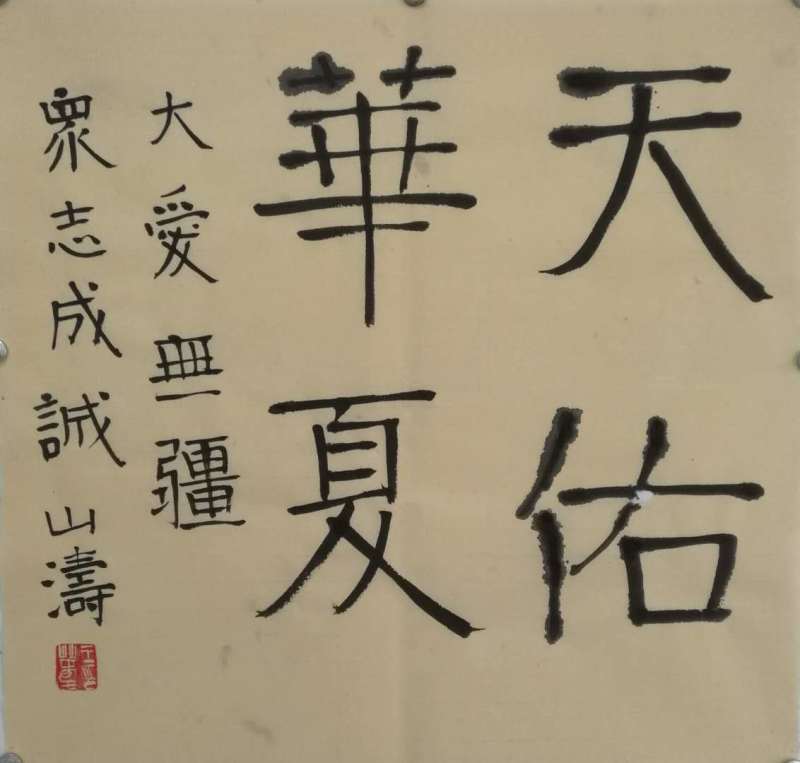 天佑
華夏
大愛無疆
眾志成誠山濤